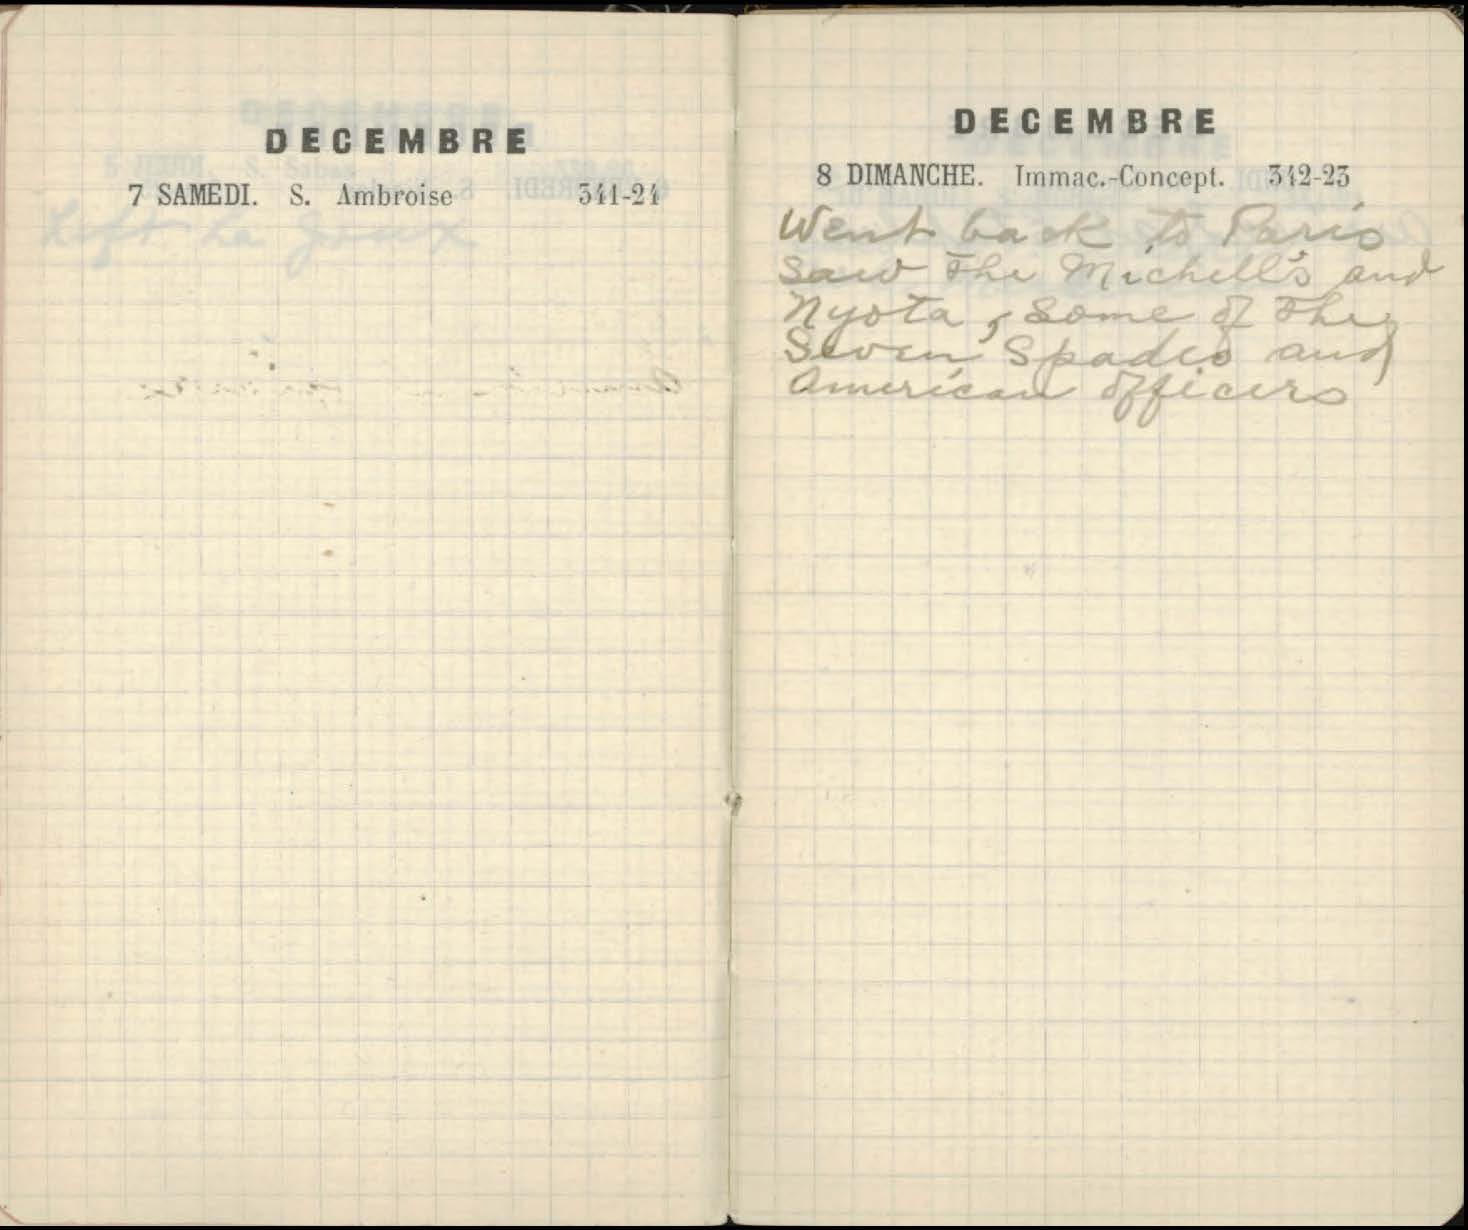 DECEMBRE
7 SAMEDI. S. Ambroise 341-24
Left La Joux
DECEMBRE
8 DIMANCHE. Immac.-Concept. 342-23
Went back to Paris
saw The Michell's and
Nyota, some of The
Seven Spades and
American officers